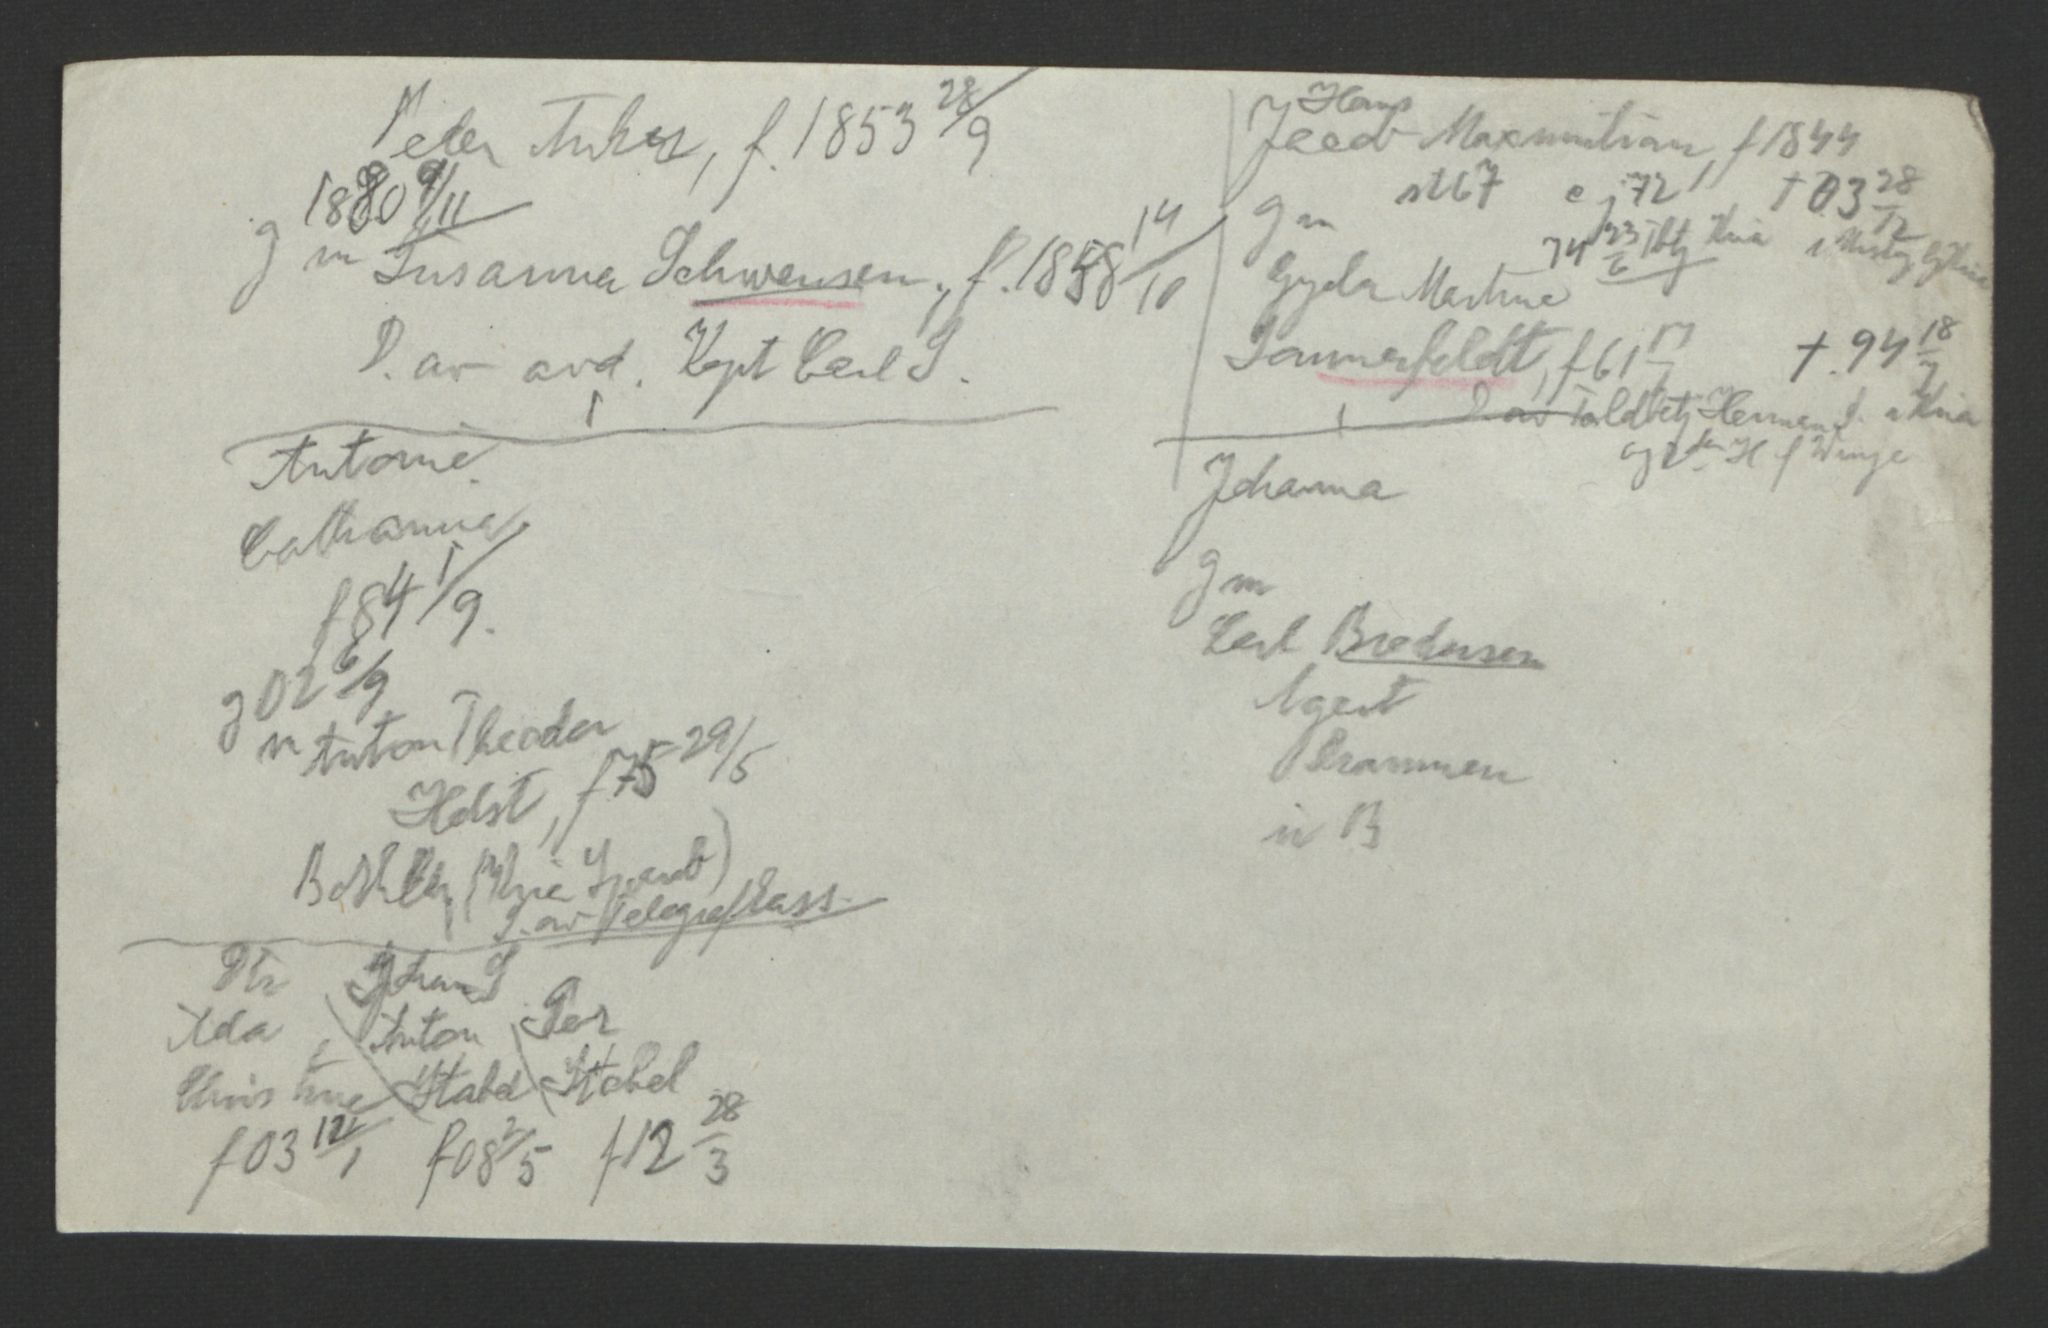 Peter Anker, f. 1853 28/9
1880 9/11
g m Susanna Schwensen, f. 1858 14/10
D. av avd. Kapt Carl S.
Antonie
Catharina
f 84 1/9.
g 02 6/9
m Anton Theodor
Holst, f 75 29/5
S. av Telegrafkass.
Ida Johan S
Anton Per
Christine Stabel Stabel
f 03 12/1 f 08 2/5 f 12 28/3
Hans
Jacob Maxmilian, f 1844
st 67 e j 72 † 03 28/12
g m
74 23/6 Kria
Gyda Martine
Sommerfeldt, f 61 † . 94 18/7
D av Toldbetj Herman S. i Kria
og H f Winge
Johanna
g m
Carl Brodersen
Agent
Drammen
i B